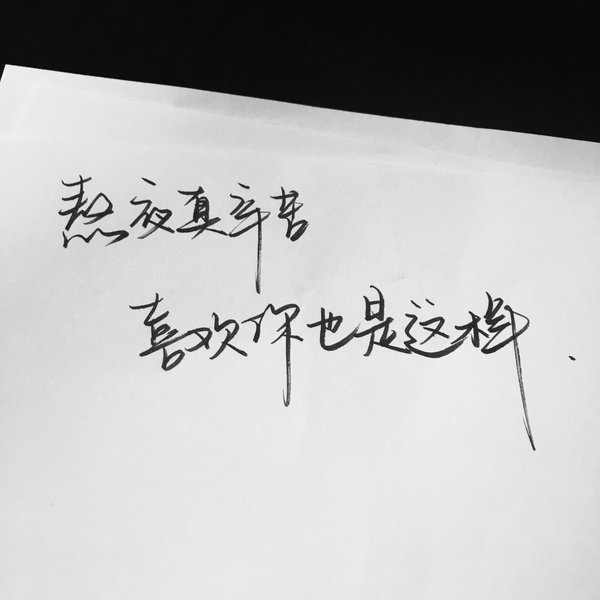 熬夜真辛苦
喜欢你也是这样.